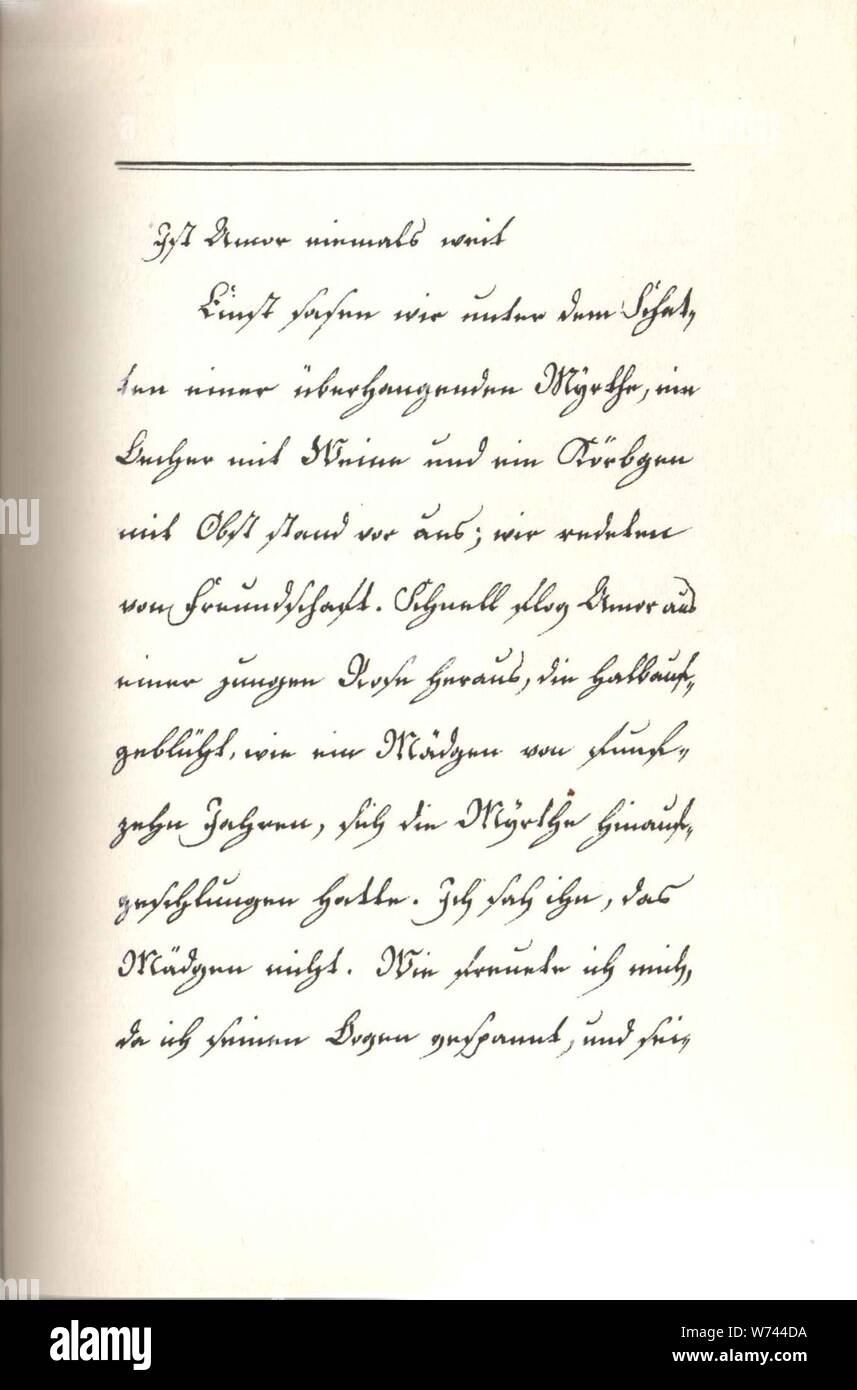 Ist Amor niemals weit
Einst sasen wir unter dem Schat-
ten einer überhangenden Myrthe, ein
Becher mit Weine und ein Körbgen
mit Obst stand vor uns; wir redeten
von Freundschaft. Schnell flog Amor aus
einer jungen Rose heraus, die halbauf-
geblüht, wie ein Mädgen von funf-
zehn Jahren, sich die Myrthe hinauf-
geschlungen hatte. Ich sah ihn, das
Mädgen nicht. Wie freuete ich mich,
da ich seinen Bogen gespannt, und sei-
my
my
alamy
alamy
Image ID: W744DA
www.alamy.com